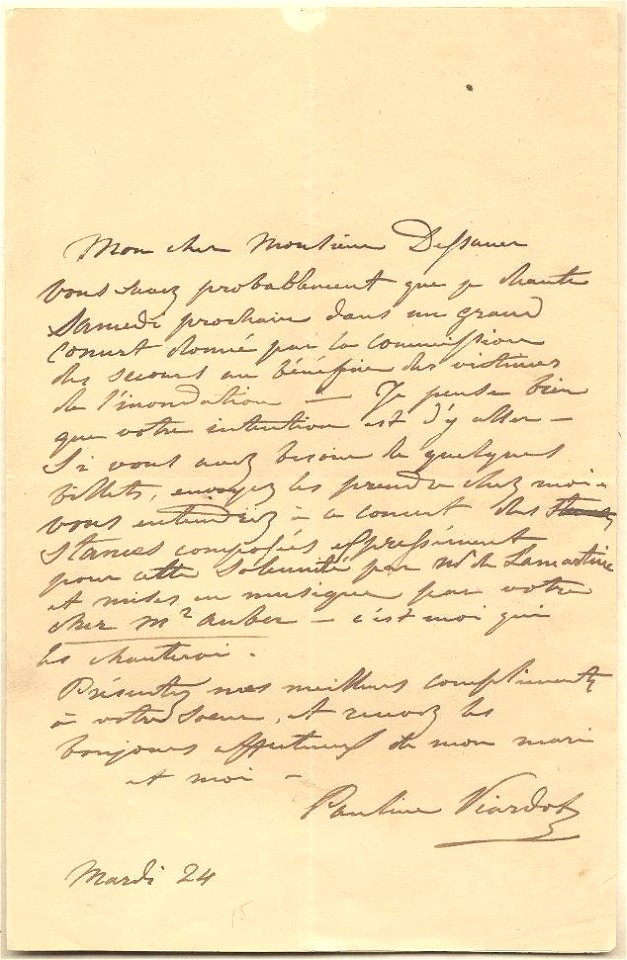 Mon cher Monsieur Dessauer
vous savez probablement que je chante
Samedi prochain dans un grand
Concert donné par la commission
des secours au bénéfice des victimes
de l'inondation — Je pense bien
que votre intention est d'y aller —
Si vous avez besoin de quelques
billets, envoyez les prendre chez moi.
vous entendrez à ce concert des
Stances composées expressément
pour cette Solennité par Mr de Lamartine
et mises en musique par votre
cher Mr Auber — c'est moi qui
les chanterai.
Présentez mes meilleurs compliments
à votre soeur, et recevez les
bonjours affectueux de mon mari
et moi —
Pauline Viardot
Mardi 24
15